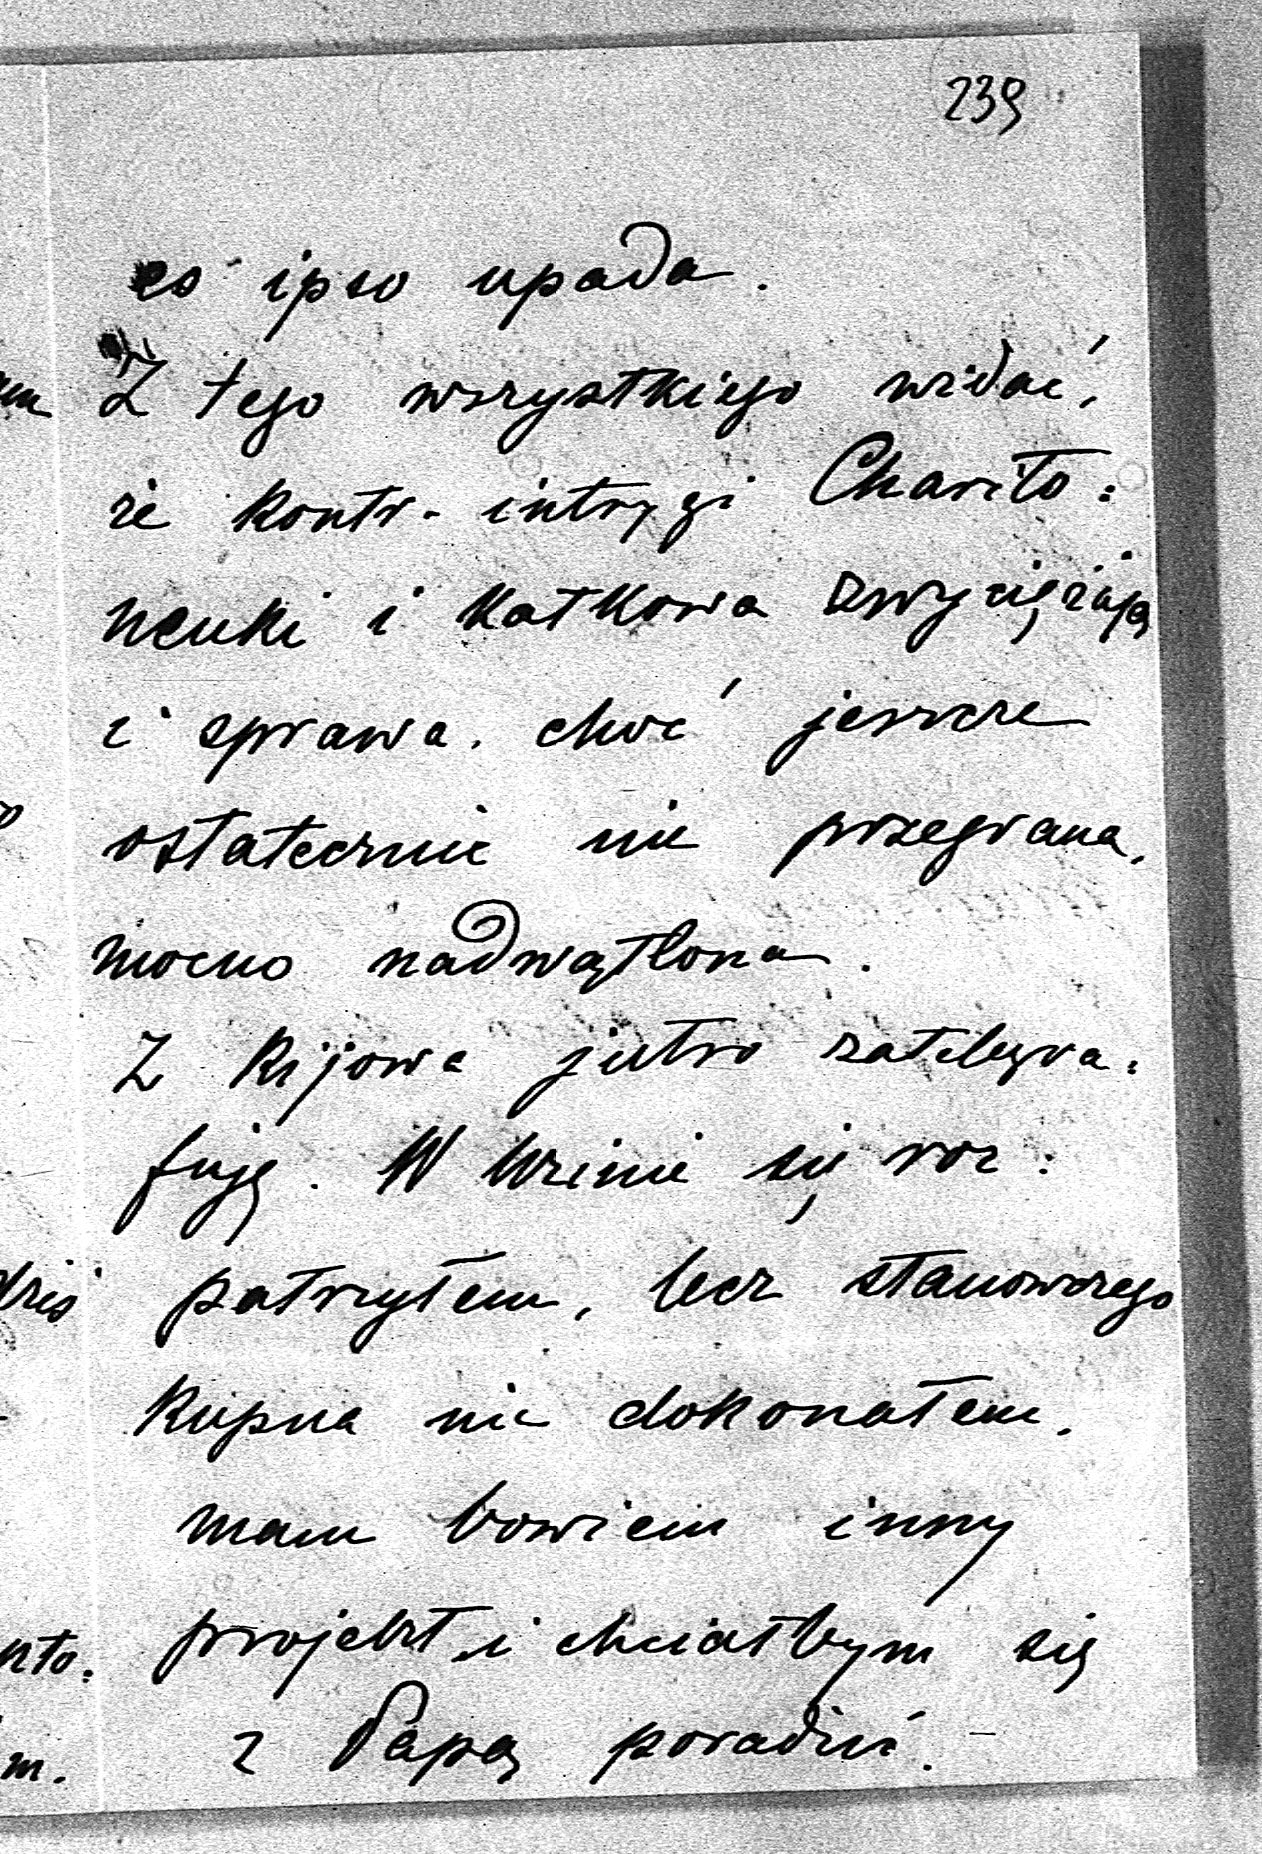 239
eo ipso upada.
Z tego wszystkiego widać,
że kontr-intrygi Charito:
nenki i Katkowa zwyciężają
i sprawa, choć jeszcze
ostatecznie nie przegrana,
mocno nadwątlona.
Z Kijowa jutro zatelegra:
fuję. W Wilnie się roz:
patrzyłem, lecz stanowczego
kupna nie dokonałem,
mam bowiem inny
projekt i chciałbym się
z Papą poradzić. —